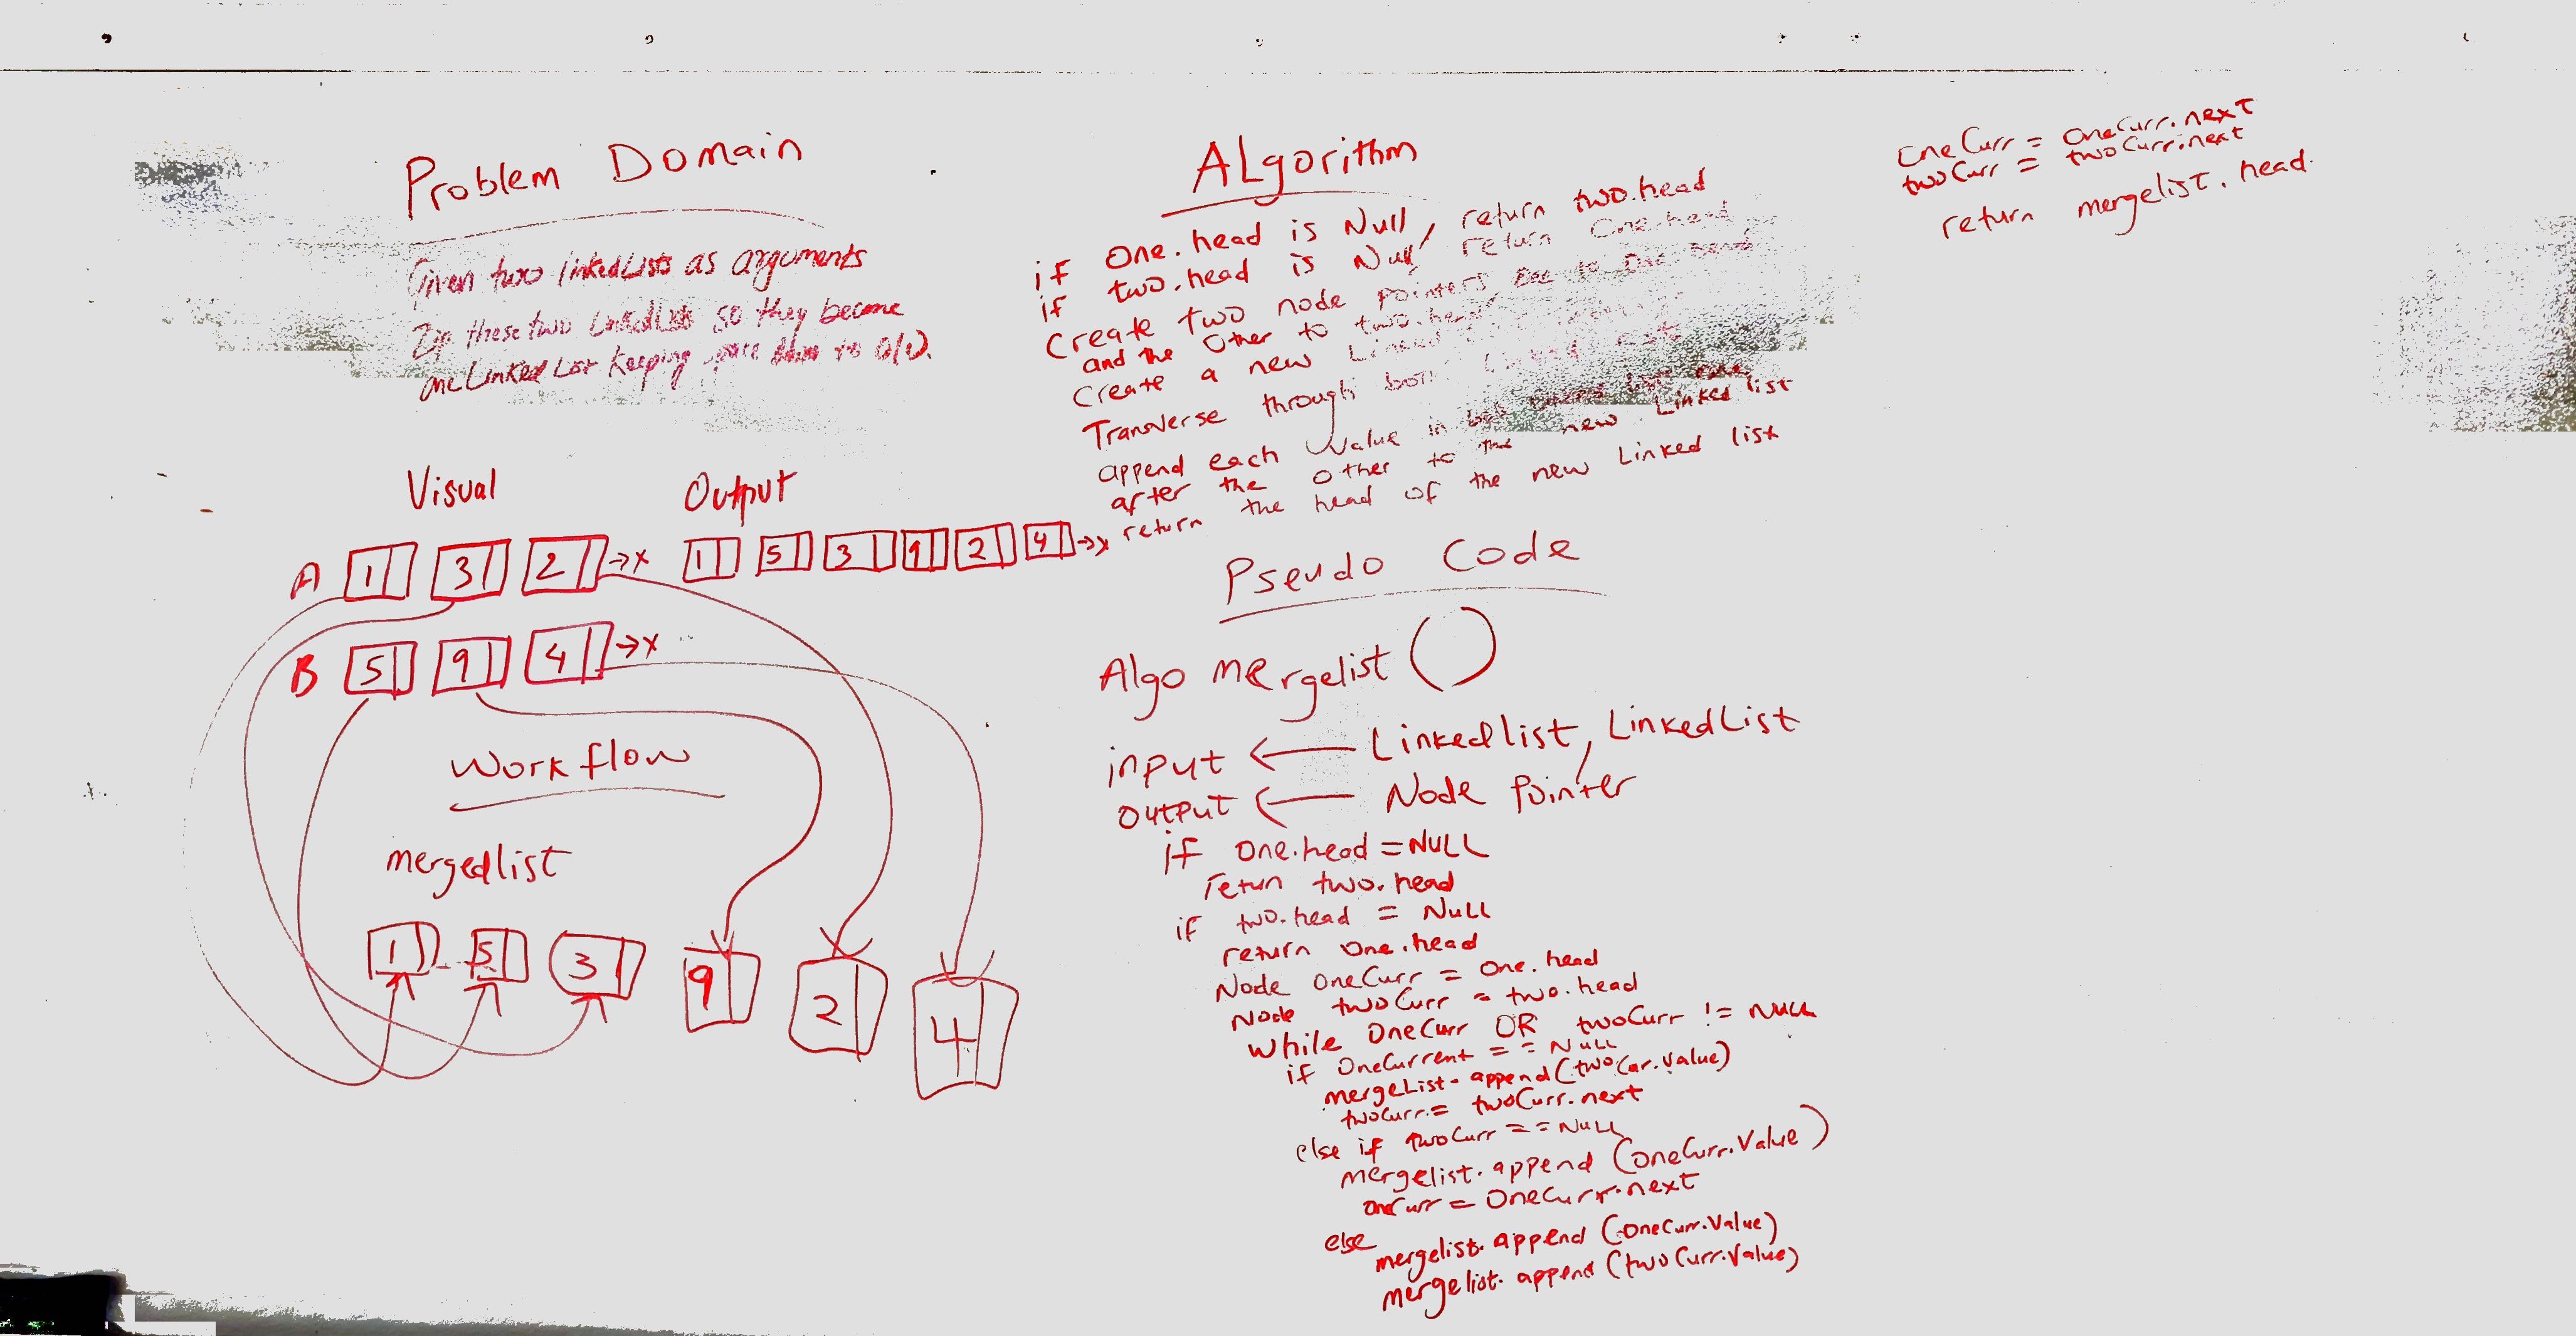 Problem Domain
Given two linkedLists as arguments
Zip these two LinkedLists so they become
one Linked List keeping to O(1).
Visual
Output
A 1 3 2 → x
1 5 3 9 2 4 → x
B 5 9 4 → x
Workflow
mergedlist
1 5 3 9 2 4
ALgorithm
if One.head is Null, return two.head
if two.head is Null, return One.head
Create two node pointers One to One.head
and the Other to two.head
Create a new Linked
Transverse through both Linked List
append each Value in
after the other to the new Linked list
return the head of the new Linked list
Pseudo Code
Algo mergelist ()
input ← Linkedlist, LinkedList
OUTPUT ← Node Pointer
if One.head = NULL
retun two.head
if two.head = NULL
return One.head
Node OneCurr = One.head
Node twoCurr = two.head
While OneCurr OR twoCurr != NULL
if OneCurrent == NULL
mergeList.append(twoCur.value)
twoCurr = twoCurr.next
else if twoCurr == NULL
mergelist.append (oneCurr.Value)
oneCurr = OneCurr.next
else
mergelist.append (oneCurr.Value)
mergelist.append (twoCurr.Value)
OneCurr = OneCurr.next
twoCurr = twoCurr.next
return mergelist.head.